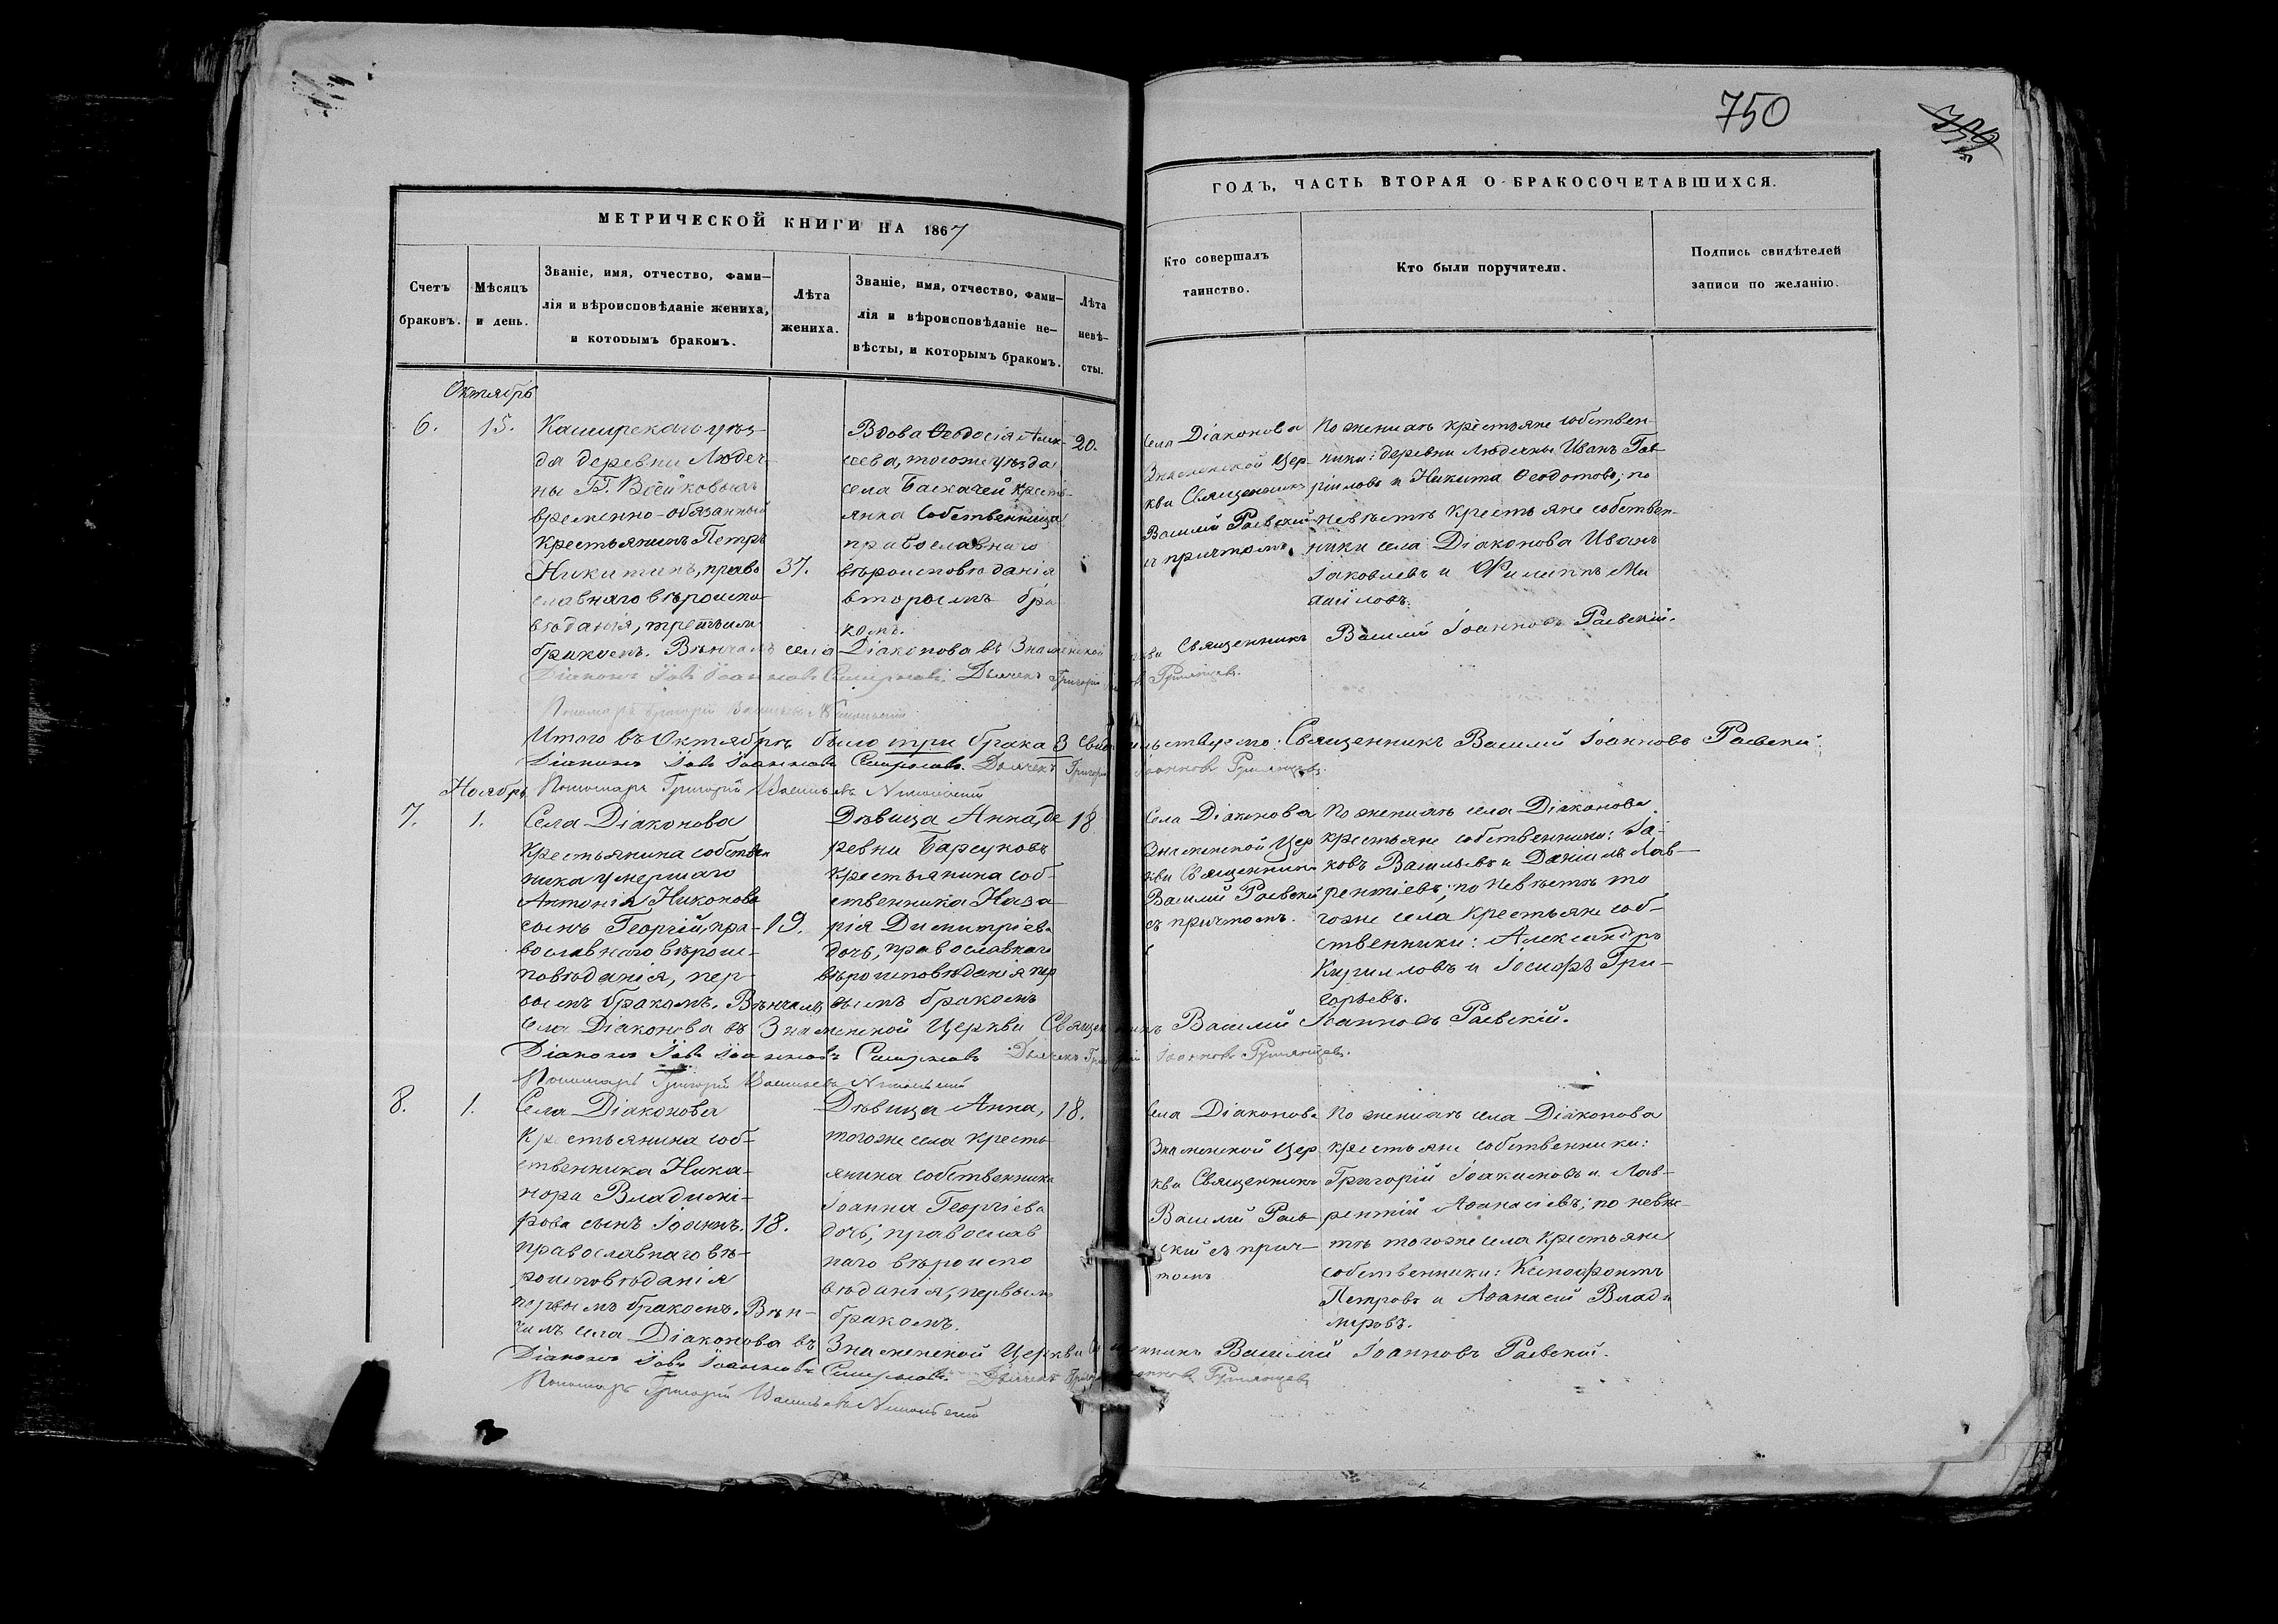 750
МЕТРИЧЕСКОЙ КНИГИ НА 1867
ГОДЪ, ЧАСТЬ ВТОРАЯ О БРАКОСОЧЕТАВШИХСЯ.
Счетъ
браковъ.
Мѣсяцъ
и день.
Званіе, имя, отчество, фами-
лія и вѣроисповѣданіе жениха,
и которымъ бракомъ.
Лѣта
жениха.
Званіе, имя, отчество, фами-
лія и вѣроисповѣданіе не-
вѣсты, и которымъ бракомъ.
Лѣта
невѣ-
сты.
Кто совершалъ
таинство.
Кто были поручители.
Подпись свидѣтелей
записи по желанію.
Октябрь
6.
15.
Каширскаго уѣз-
да деревни Людеч-
ны Г. Воейковыхъ
временно-обязанный
крестьянинъ Петръ
Никитинъ, право
славнаго вѣроиспо-
вѣданія, третьимъ
бракомъ.
37.
Вдова Ѳеодосія Алек-
сеева, тогоже уѣзда
села Баскачей кресть-
янка собственница
православнаго
вѣроисповѣданія
вторымъ бра
комъ.
20.
Села Діаконова
Знаменской Цер-
кви Священникъ
Василій Раевскій
съ причтомъ.
По женихѣ крестьяне собствен-
ники: деревни Людечны Иванъ Гав-
ріиловъ и Никита Ѳеодотовъ; по
невѣстѣ крестьяне собствен-
ники села Діаконова Иванъ
Іаковлевъ и Филиппъ Ми
хаиловъ.
Вѣнчалъ села Діаконова въ Знаменской Церкви Священникъ Василій Іоанновъ Раевскій.
Діаконъ Іовъ Іоанновъ Смирновъ. Дьячекъ Григорій Румянцевъ.
Пономарь Григорій Васильевъ Никольскій
Итого въ Октябрѣ было три брака 3 Свидѣтельствуемъ: Священникъ Василій Іоанновъ Раевскій
Діаконъ Іовъ Іоанновъ Смирновъ. Дьячекъ Григорій Іоанновъ Румянцевъ.
Пономарь Григорій Васильевъ Никольскій
Ноябрь
7.
1.
Села Діаконова
крестьянина собствен
ника умершаго
Антонія Никонова
сынъ Георгій, пра-
вославнаго вѣроис-
повѣданія, пер-
вымъ бракомъ.
19.
Дѣвица Анна, де
ревни Барсуковъ
крестьянина соб-
ственника Наза-
рія Димитріева
дочь, православнаго
вѣроисповѣданія пер
вымъ бракомъ
18.
Села Діаконова
Знаменской Цер
кви Священникъ
Василій Раевскій
съ причтомъ.
По женихѣ села Діаконова
крестьяне собственники: Іа-
ковъ Васильевъ и Даніилъ Лав-
рентіевъ; по невѣстѣ то
гоже села крестьяне соб-
ственники: Александръ
Кирилловъ и Іосифъ Гри-
горьевъ.
Вѣнчалъ
села Діаконова въ Знаменской Церкви Священникъ Василій Іоанновъ Раевскій.
Діаконъ Іовъ Іоанновъ Смирновъ Дьячекъ Григорій Іоанновъ Румянцевъ.
Пономарь Григорій Васильевъ Никольскій
8.
1.
Села Діаконова
крестьянина соб-
ственника Ника-
нора Владимі-
рова сынъ Іоаннъ,
православнаго вѣ-
роисповѣданія
первымъ бракомъ.
18.
Дѣвица Анна,
тогоже села кресть
янина собственника
Іоанна Георгіева
дочь, православ
наго вѣроиспо
вѣданія, первымъ
бракомъ.
18.
Села Діаконова
Знаменской Цер
кви Священникъ
Василій Раев-
скій съ прич-
томъ
По женихѣ села Діаконова
крестьяне собственники:
Григорій Іоакимовъ и Лав-
рентій Аѳанасіевъ; по невѣс-
тѣ тогоже села крестьяне
собственники: Ксенофонтъ
Петровъ и Аѳанасій Влади
міровъ.
Вѣн-
чалъ села Діаконова въ Знаменской Церкви Священникъ Василій Іоанновъ Раевскій.
Діаконъ Іовъ Іоанновъ Смирновъ. Дьячекъ Григорій Іоанновъ Румянцевъ
Пономарь Григорій Васильевъ Никольскій